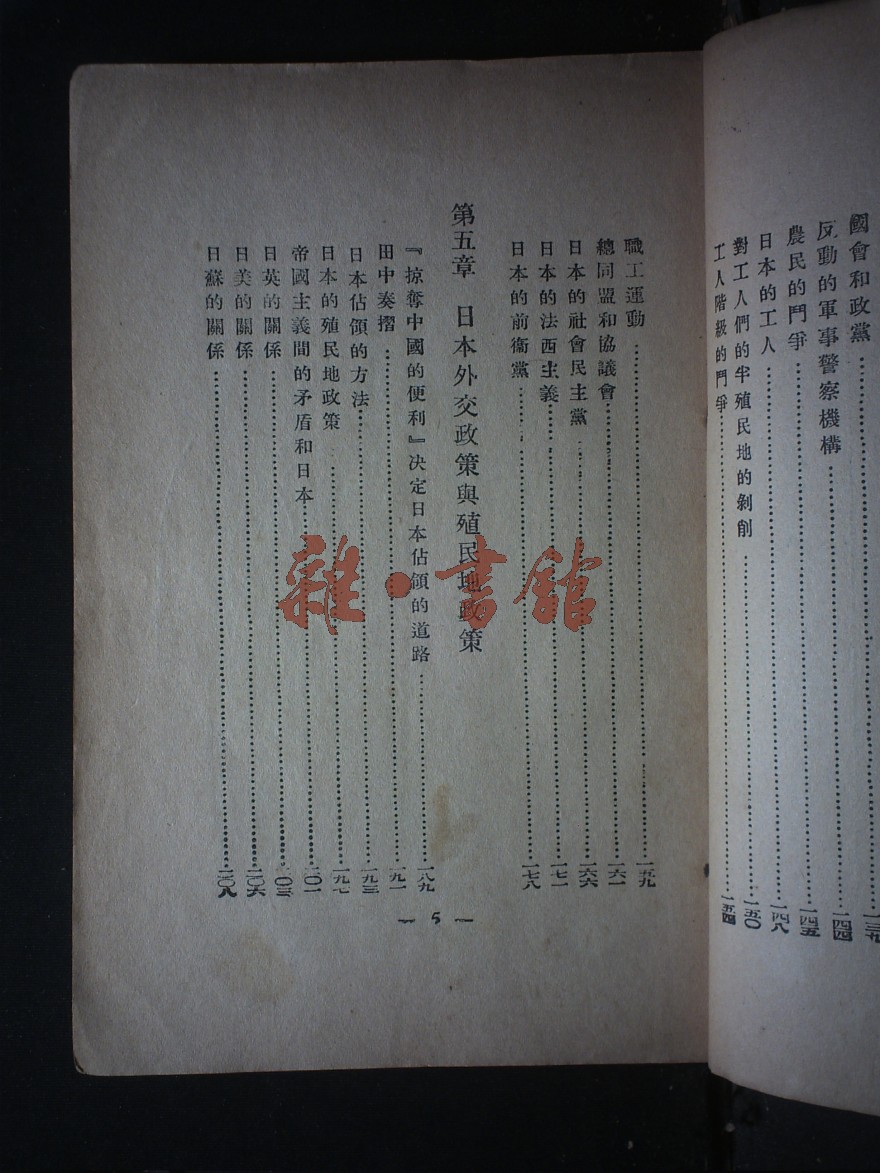 國會和政黨……一三九
反動的軍事警察機構……一四四
農民的鬥爭……一四五
日本的工人……一四八
對工人們的半殖民地的剝削……一五〇
工人階級的鬥爭……一五四
職工運動……一五九
總同盟和協議會……一六一
日本的社會民主黨……一六六
日本的法西主義……一七一
日本的前衞黨……一七八
第五章 日本外交政策與殖民地政策
『掠奪中國的便利』決定日本佔領的道路……一八九
田中奏摺……一九一
日本佔領的方法……一九三
日本的殖民地政策……一九七
帝國主義間的矛盾和日本……二〇一
日英的關係……二〇三
日美的關係……二〇六
日蘇的關係……二〇八
— 5 —
雜·書館